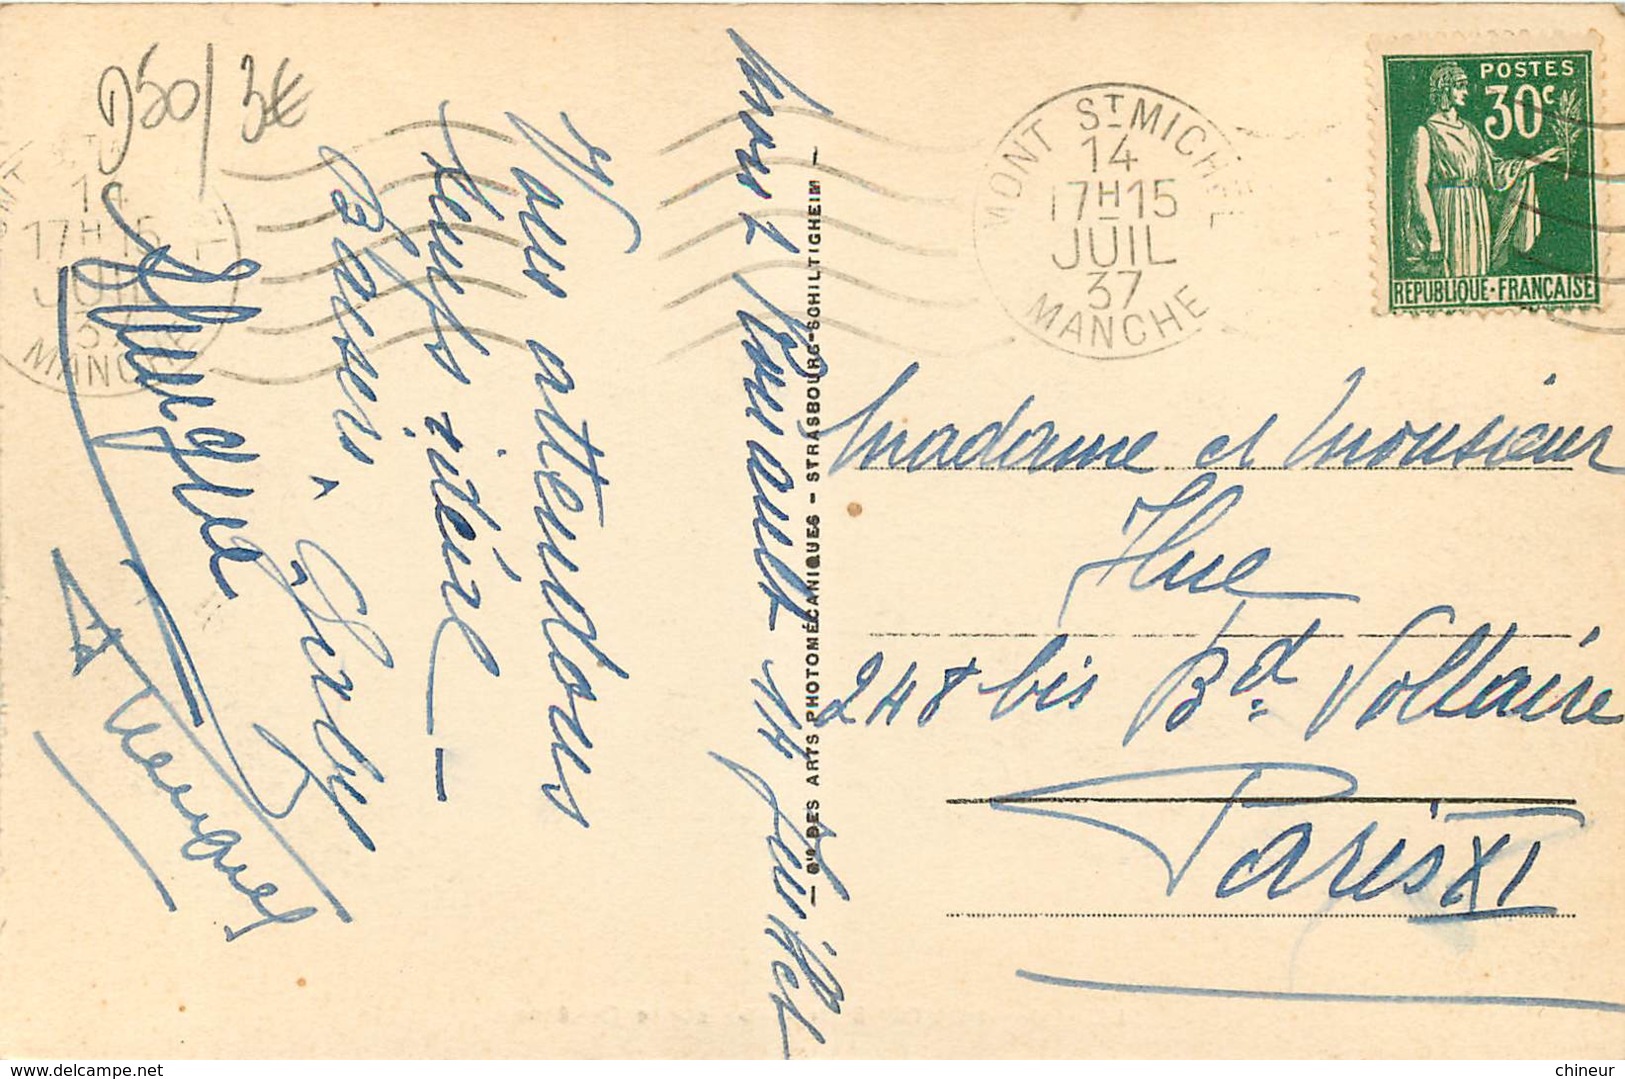 D50/3€
Mont St Michel 14 Juillet
Vous attendons
temps idéal —
Baisers
MONT ST MICHEL
14
17H15
JUIL
37
MANCHE
MONT ST MICHEL
14
17H15
JUIL
37
MANCHE
— Cie DES ARTS PHOTOMÉCANIQUES - STRASBOURG-SCHILTIGHEIM —
POSTES
30c
REPUBLIQUE-FRANÇAISE
Madame et Monsieur
Hue
248 bis Bd Voltaire
Paris XI
www.delcampe.net
chineur